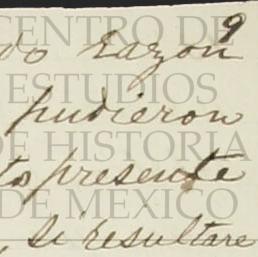 9
do razon
pudieron
to presente
, si resultare
CENTRO DE
ESTUDIOS
DE HISTORIA
DE MEXICO